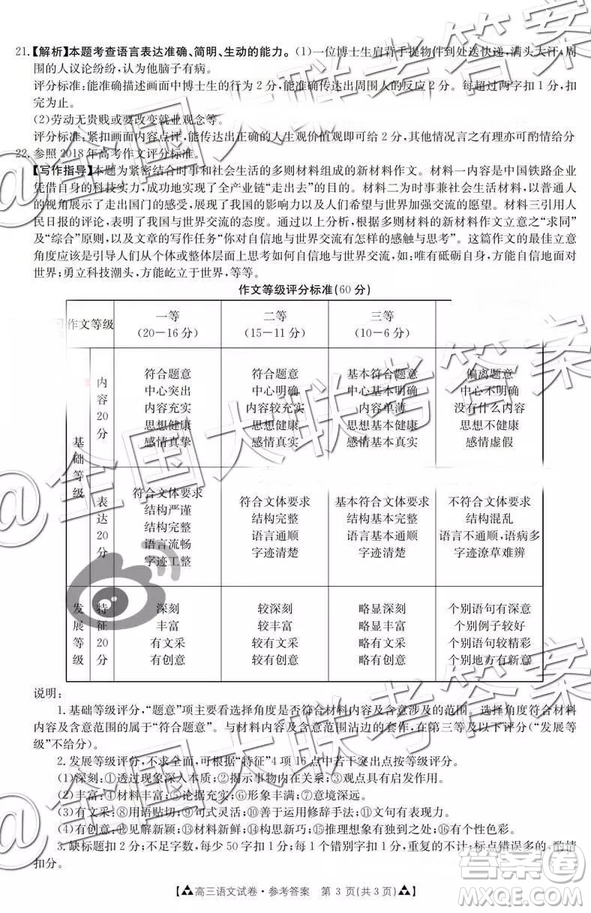 21.【解析】本题考查语言表达准确、简明、生动的能力。(1)一位博士生肩背手提物件到处送快递,满头大汗,周
围的人议论纷纷,认为他脑子有病。
评分标准:能准确描述画面中博士生的行为2分,能准确传达出周围人的反应2分。每超过两字扣1分,扣
完为止。
(2)劳动无贵贱或要改变就业观念等。
评分标准:紧扣画面内容点评,能准确传达出正确的人生观价值观即可得2分,其他情况言之有理亦可得分
22.参照2018年高考作文评分标准。
【写作指导】本题为紧密结合时事和社会生活的多则材料组成的新材料作文。材料一内容是中国铁路企业
凭借自身的科技实力,成功地实现了全产业链“走出去”的目的。材料二为时事兼社会生活材料,以普通人
的视角展示了走出国门的感受,也表明了国家的影响力以及人们希望与世界加强沟通的愿望。材料三引用人
民日报的评论,表明了我国与世界交流的态度。通过以上分析,根据多则材料的新材料作文立意之“求同”
及“综合”原则,以及文章的写作任务“你对自信地与世界交流有怎样的感触与思考”。这篇作文的最佳立意
角度应该是引导人们从个体或国家层面思考如何自信地面对世界,如:唯有砥砺自身,方能自信地面对
世界;勇立科技潮头,方能屹立于世界,等等。
作文等级评分标准(60分)
作文等级
一等
(20－16分)
二等
(15－11分)
三等
(10－6分)
基础等级
内容20分
符合题意
中心突出
内容充实
思想健康
感情真挚
符合题意
中心明确
内容较充实
思想健康
感情真实
基本符合题意
中心基本明确
内容单薄
思想基本健康
感情基本真实
偏离题意
中心不明确
没有什么内容
思想不健康
感情虚假
表达20分
符合文体要求
结构严谨
语言流畅
字迹工整
符合文体要求
结构完整
语言通顺
字迹清楚
基本符合文体要求
结构基本完整
语言基本通顺
字迹基本清楚
不符合文体要求
结构混乱
语言不通顺,语病多
字迹潦草难辨
发展等级
特征20分
深刻
丰富
有文采
有创意
较深刻
较丰富
较有文采
较有创意
略显深刻
略显丰富
略有文采
略有创意
个别语句有深意
个别例子较好
个别语句较精彩
个别地方有创意
说明:
1.基础等级评分,“题意”项主要看选择角度是否符合材料内容及含意所涉及的范围。选择角度符合材料
内容及含意范围的属于“符合题意”。与材料内容及含意范围沾边的套作,在第三等及以下评分(“发展等
级”不给分)。
2.发展等级评分,不求全面,可根据“特征”4项16点中若干突出点按等级评分。
(1)深刻:①透过现象深入本质②揭示事物内在的因果关系③观点具有启发作用。
(2)丰富:④材料丰富⑤论据充实⑥形象丰满⑦意境深远。
(3)有文采:⑧用词贴切⑨句式灵活⑩善于运用修辞手法⑪文句有表现力。
(4)有创意:⑫见解新颖⑬材料新鲜⑭构思新巧⑮推理想象有独到之处⑯有个性特征。
3.缺标题扣2分;不足字数,每少50字扣1分;每1个错别字扣1分,重复的不计;标点错误多的、酌情
扣分。
高三语文试卷·参考答案 第3页(共3页)
@全国大联考答案
@全国大联考答案
@全国大联考答案
答案圈
MXQE.COM